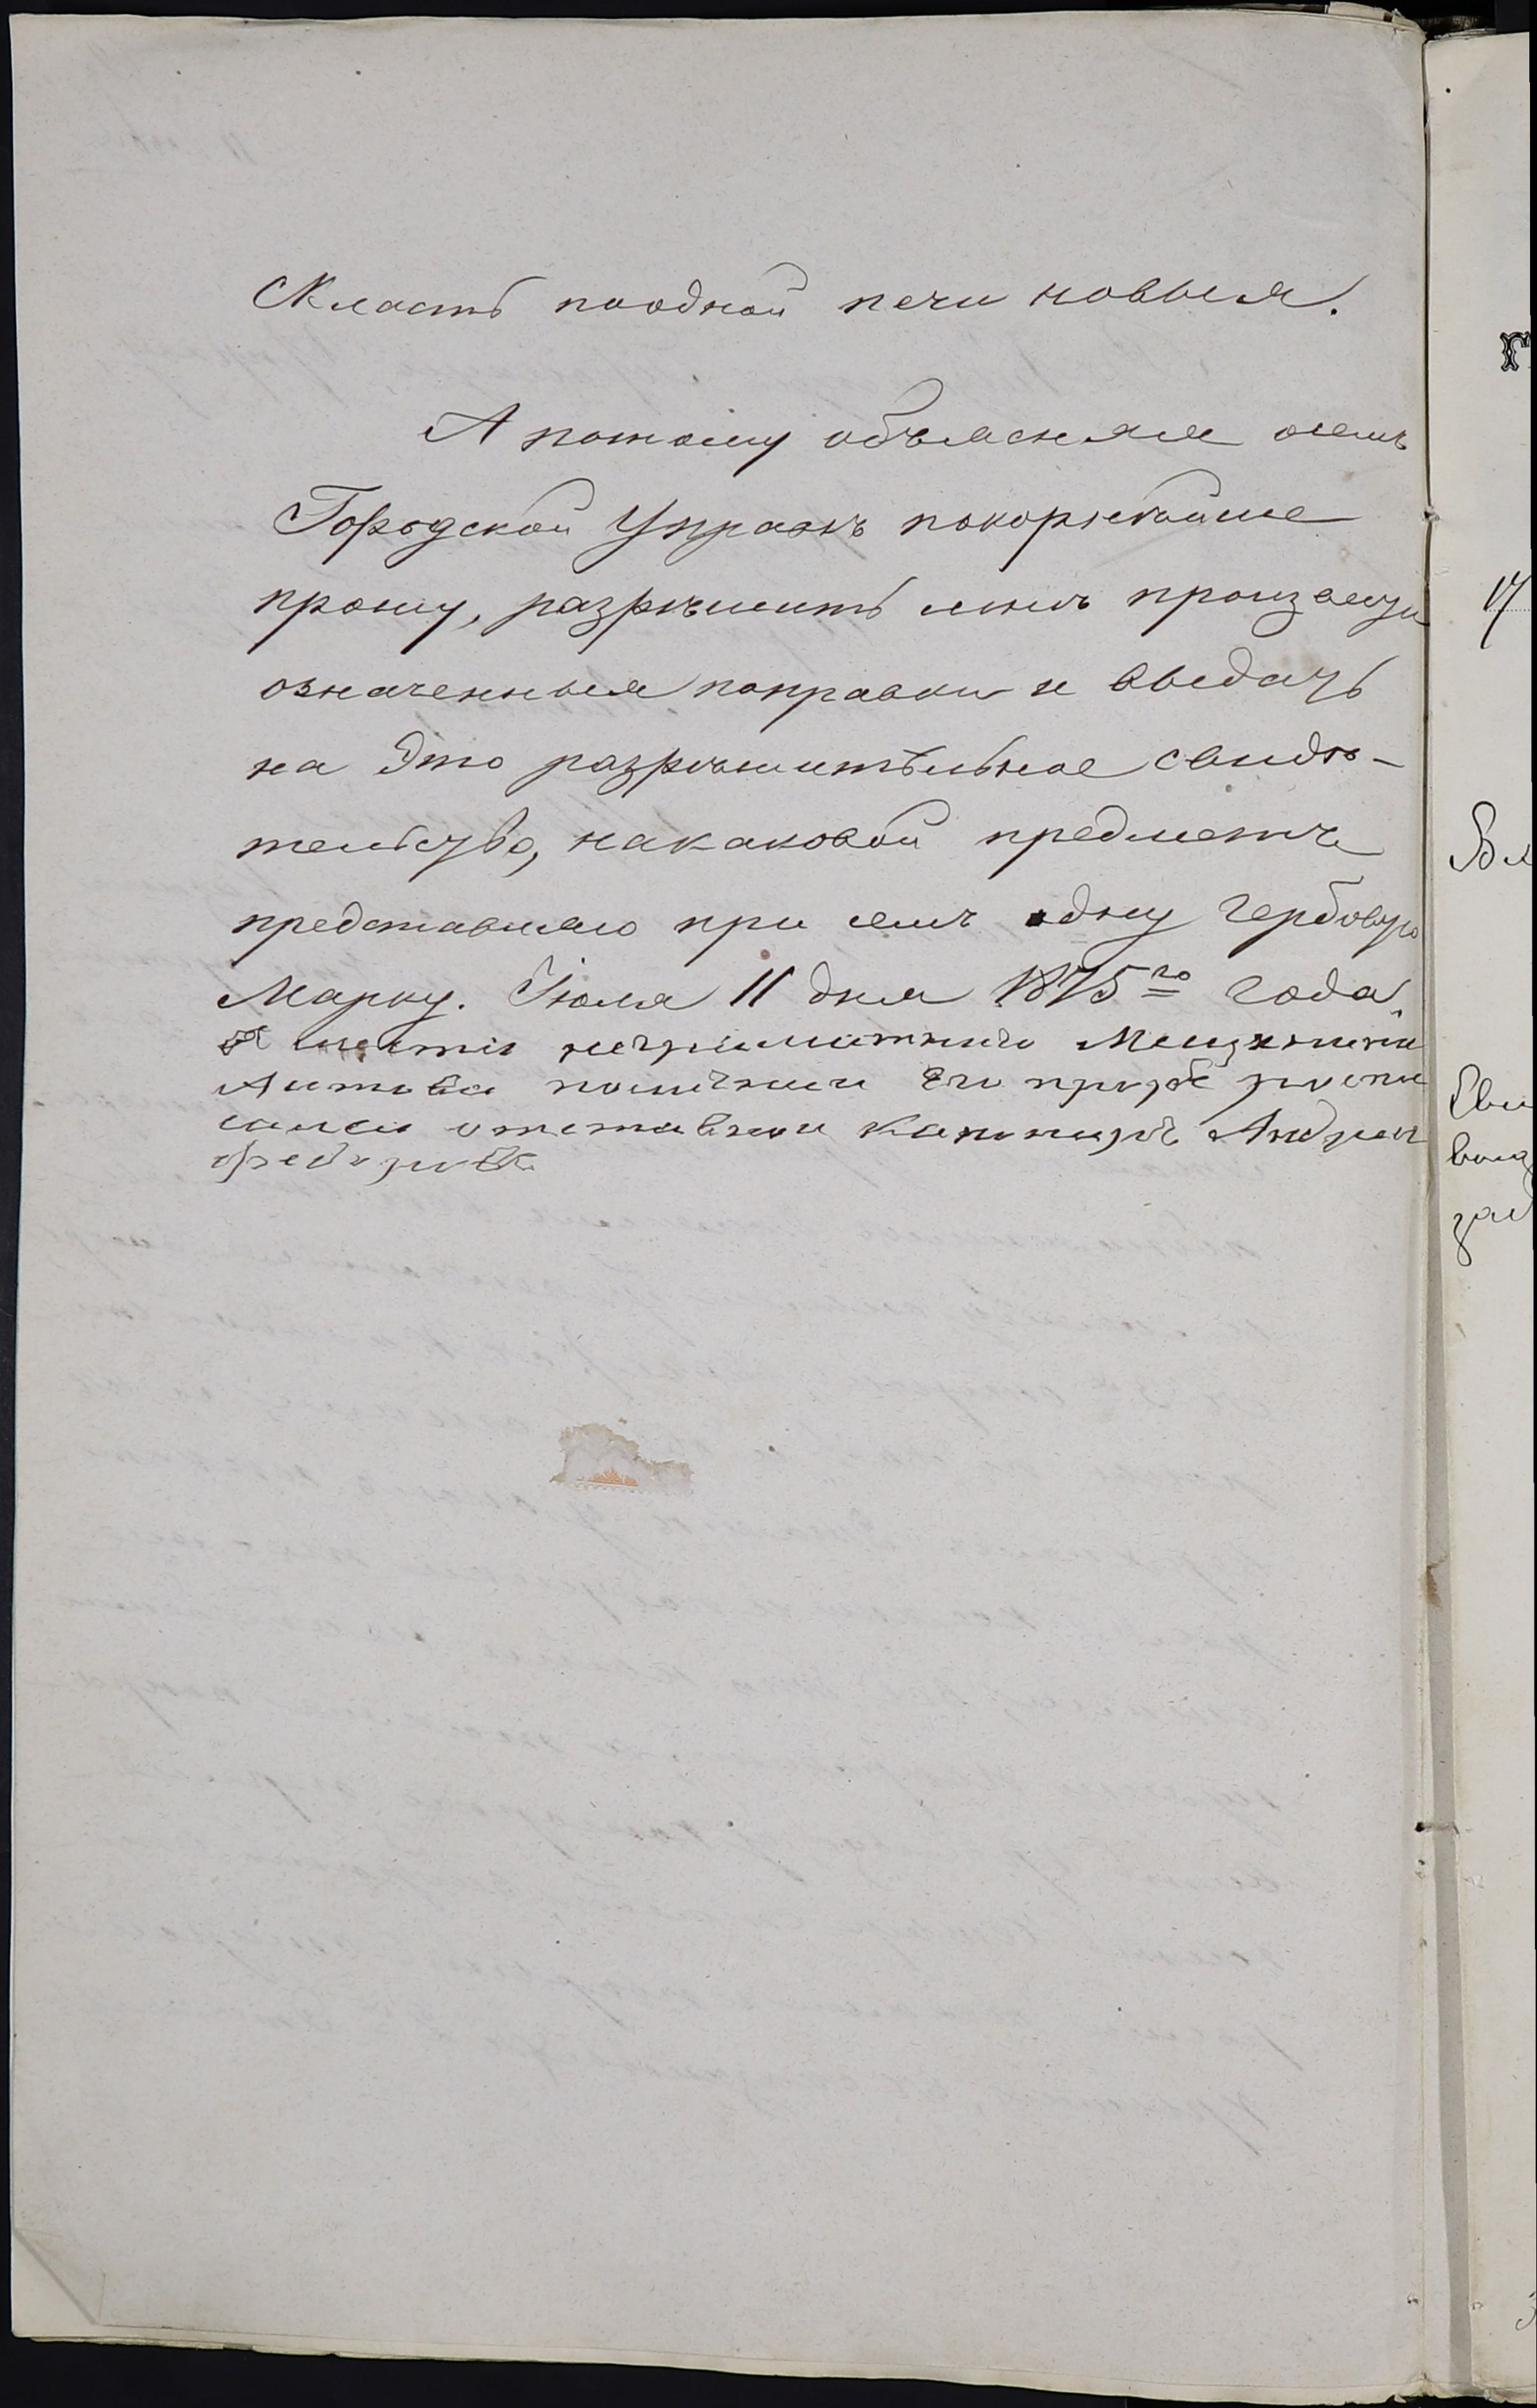 Скласть поодной печи новыя.
А потому объясняя осемъ
Городской Управъ покорнѣйше
прошу, разрѣшить мнѣ произвести
означенныя поправки и выдать
на Это разрѣшительное свидѣ-
тельство, накаковой предметъ
представляю при семъ одну Гербовую
Марку. Іюля 11 дня 1875го года.
неграмотнаго
Антова поличной Его прозбе росписа
сался отставной Андрей
Г
Вы
зад